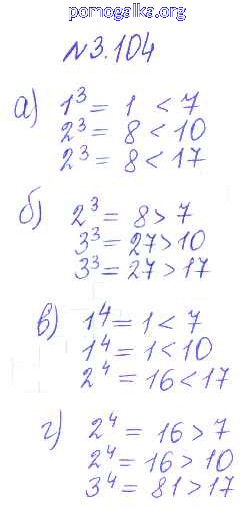 pomogalka.org
№3.104
а) 1³ = 1 < 7
2³ = 8 < 10
2³ = 8 < 17
б) 2³ = 8 > 7
3³ = 27 > 10
3³ = 27 > 17
в) 1⁴ = 1 < 7
1⁴ = 1 < 10
2⁴ = 16 < 17
г) 2⁴ = 16 > 7
2⁴ = 16 > 10
3⁴ = 81 > 17